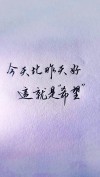 今天比昨天好
这就是“希望”